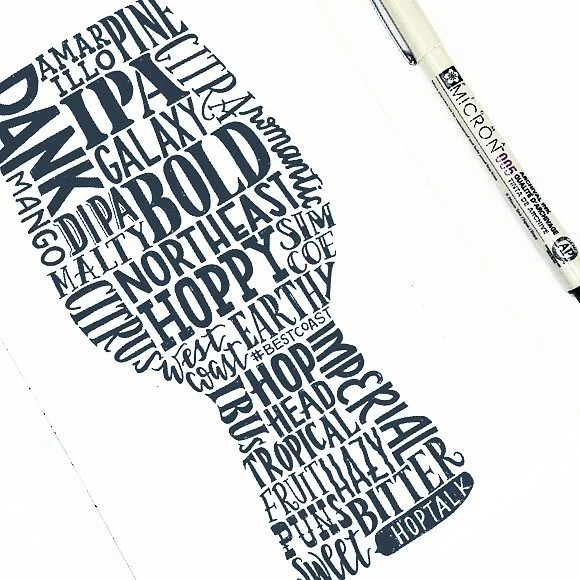 AMARILLO
PINE
CITRA
DANK
IPA
GALAXY
aromantic
BOLD
MANGO
DIPA
MALTY
NORTHEAST
SIMCOE
HOPPY
CITRUS
west coast
EARTHY
#BESTCOAST
IBUS
HOP HEAD
IMPERIAL
TROPICAL
FRUIT
HAZY
PUNS
BITTER
sweet
HOPTALK
MICRON
005
ARCHIVAL INK
QUALITÉ D'ARCHIVAGE
TINTA DE ARCHIVO
AP